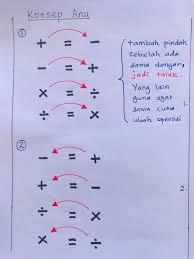 Konsep Anu
①
+ = -
- = +
× = ÷
÷ = ×
tambah pindah
sebelah ada
sama dengan,
jadi tolak.
Yang lain
guna ayat
sama cuma
ubah operasi
1.
②
- = +
+ = -
÷ = ×
× = ÷
2.